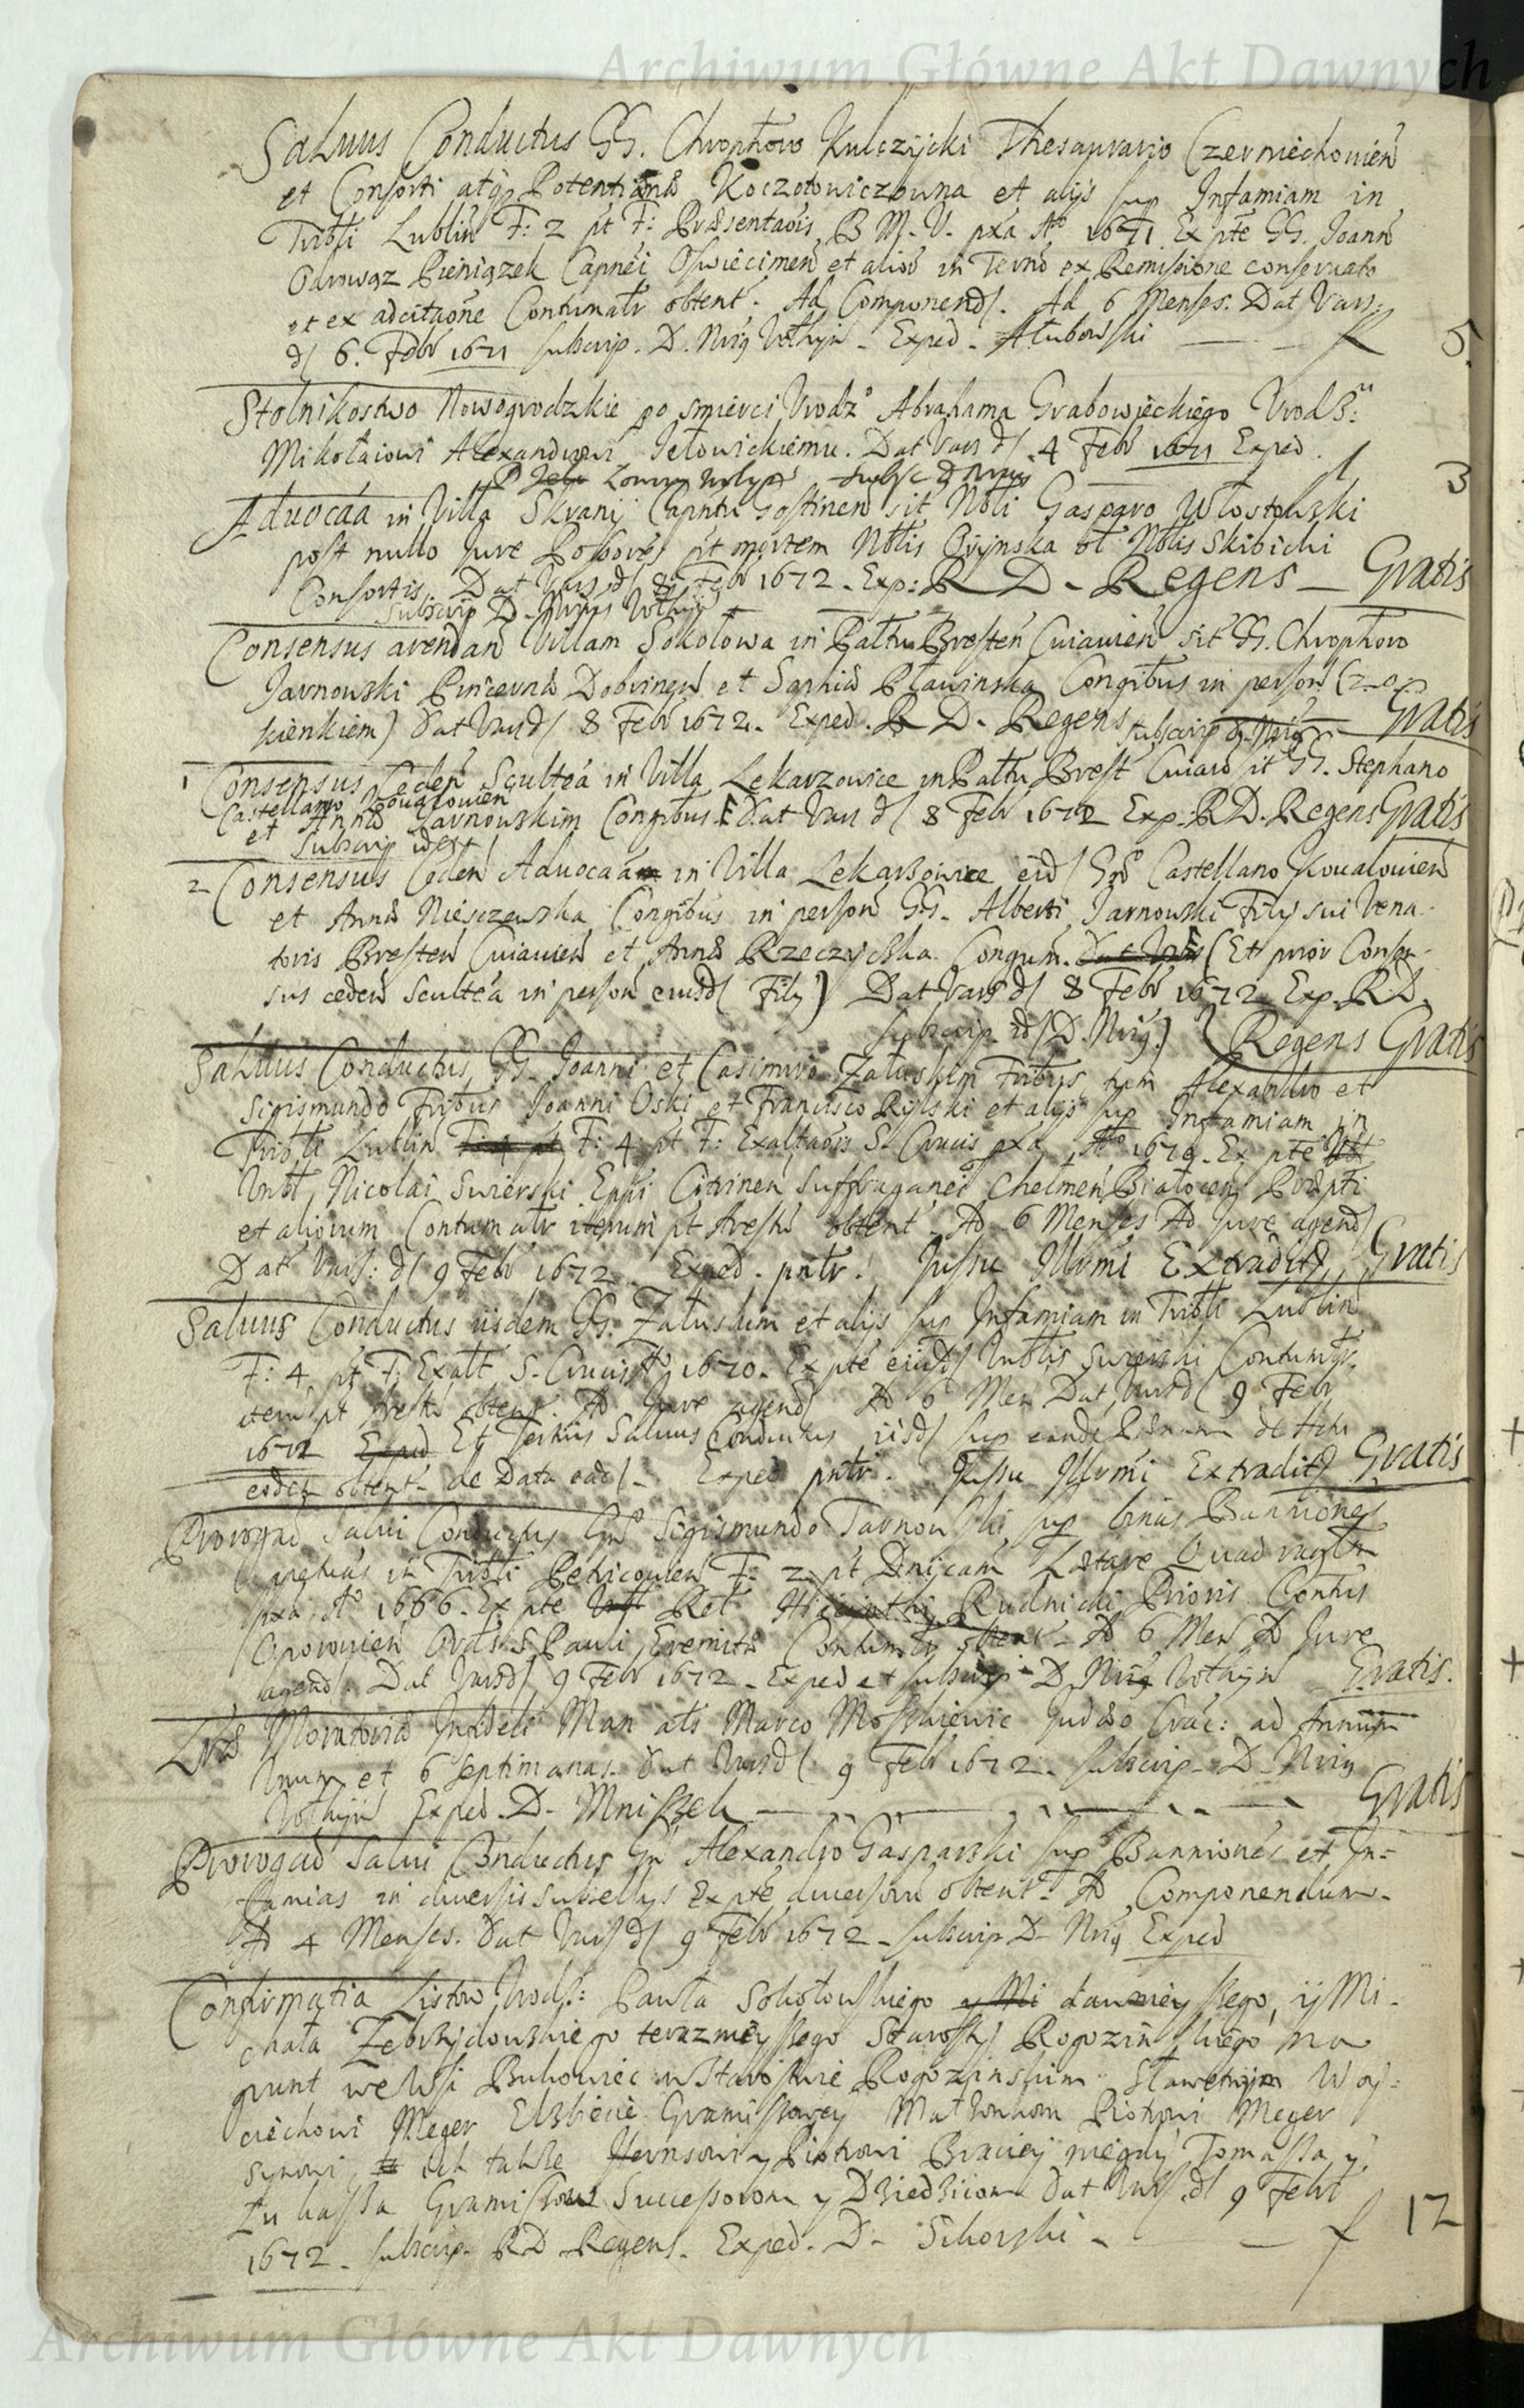 Archiwum Główne Akt Dawnych
Salvus Conductus GG. Chrophoro Kulczycki Thesaurario Czerniechovien
et Consorti atq Potentianæ Koczotowiczowna et alijs sup Infamiam in
Tribli Lublin F: 2 pt F: Præsentaõis B M. V. pxa Ao 1671 Ex pte GG. Joann
Odrowąz Pieniązek Capnei Oswiecimen et alior in Termo ex Remissione conservato
et ex adcitaõne Contumatr obtent. Ad Componend. Ad 6 Menses. Dat Vars:
d 6. Febr 1671 subscrip. D. Nrig Wthijn - Exped - Ałubowski — f 5.
Stolnikostwo Nowogrodzkie po smierci Vrodz° Abrahama Grabowieckiego Vrodz:
Mikołaiowi Alexandrowi Jełowickiemu. Dat Vars d 4 Febr 1671 Exped.
f 3
Advocaa in Villa Skranij Capntu Gostinen sit Nbli Gasparo Włostowski
post nullo Jure Possores pt mortem Nblis Oryjnska ol Nblis Skibicki
Consortis. Dat Vars d 8 Febr 1672 - Exp: R D - Regens — Gratis
Subscrip D. Nrigs Wthijn
Consensus arendan Villam Sokołowa in Pałtu Bresten Cuiavien sit GG. Chrophoro
Jarnowski Pincerna Dobrinen et Sophia Pławinska Congibus in person (z o
kienkiem) Dat Vars d 8 Febr 1672. Exped. R D. Regens subscrip D. Nrig — Gratis
1 Consensus Ceden Scultea in Villa Lekarzowice in Pałtu Brest Cuiav sit GG. Stephano
Castellano Kowalovien
et Anna Jarnowskim Congibus. Dat Vars d 8 Febr 1672 Exp: R D. Regens Gratis
Subscrip idem
2 Consensus Ceden Advocaam in Villa Lekarzowice eid Gno Castellano Kovalovien
et Anna Niesczewska Congibus in person GG. Alberti Jarnowski Filij sui Vena-
toris Bresten Cuiavien et Anna Rzeczycka Congum. Dat Vars (Et prior Consen-
sus ceden Scultea in person eiusd Filij) Dat Vars d 8 Febr 1672 Exp. R D.
subscrip. id D. Nrig.) Regens Gratis
Salvus Conductus GG. Joanni et Casimiro Załuskim Fribus, tum Alexandro et
Sigismundo Fribus Joanni Oski et Francisco Rylski et alijs sup Infamiam in
Tribli Lublin F: 4 pt F: Exaltaõis S. Crucis pxa Ao 1670. Ex pte
Nicolai Swierski Eppi Citrinen Suffraganei Chelmen Białocen Præpti
et aliorum Contumatr iterum pt Arestu obtent. Ad 6 Menses Ad Jure agend
Dat Vars: d 9 Febr 1672. Exped. pntr. Jussu Illrmi Extradit Gratis
Salvus Conductus iisdem GG. Załuskim et alijs sup Infamiam in Tribli Lublin
F: 4 pt F: Exalt S. Crucis Ao 1670. Ex pte eiusd Swierski Contumtr.
item pt Arestu obtent. Ad Jure agend Ad 6 Men Dat Vars d 9 Febr
1672 Exped Et Tertius Salvus Conductus iisd sup eande
eodem obtent. de Data ead - Exped pntr. Jussu Illrmi Extradit Gratis
Prorogaõ Salvi Conductus Gno Sigismundo Tarnowski sup binas Banniones
in Tribli Petricovien F: 2 pt Dnicam Lætare Quadragesi
pxa Ao 1666. Ex pte Rel Hiacinthi Rudnicki Prioris Contus
Oporowien Ords S. Pauli Eremitæ Contumtr obtent - Ad 6 Men Ad Jure
agend. Dat Vars d 9 Febr 1672 - Exped et subscrip D. Nrig Wthijn Gratis.
Lræ Moratoriæ Infideli Man als Marco Moskiewic Judæo Crac: ad Annum
Unum et 6 Septimanas. Dat Vars d 9 Febr 1672. subscrip. D. Nrig
Wthijn Exped. D. Mniszek — Gratis
Prorogaõ Salvi Conductus Gn Alexandro Gasparski sup Banniones et In-
famias in diversis subsellijs Ex pte diversoru obtent. Ad Componendum.
Ad 4 Menses. Dat Vars d 9 Febr 1672 - subscrip D. Nrig Exped
Confirmatia Listow Vrodz: Pawła Sokołowskiego y Mi dawnieyszego, ij Mi-
chała Zebrzydowskiego terazniejszego Starosty Rogozinskiego, na
grunt we Wsi Bukowiec w Starostwie Rogozinskim Sławetnym Woy-
ciechowi Meger Elzbiecie Gramiszowey Małzonkom Piotrowi Meger
Synowi, ich takze y Piotrowi Braciey niegdy Tomasza y
Łukassa Gramiszow Successorom y Dziedzicom Dat Vars d 9 Febr
1672 - subscrip. R D Regens. Exped. D. Sikorski - f 12
Archiwum Główne Akt Dawnych